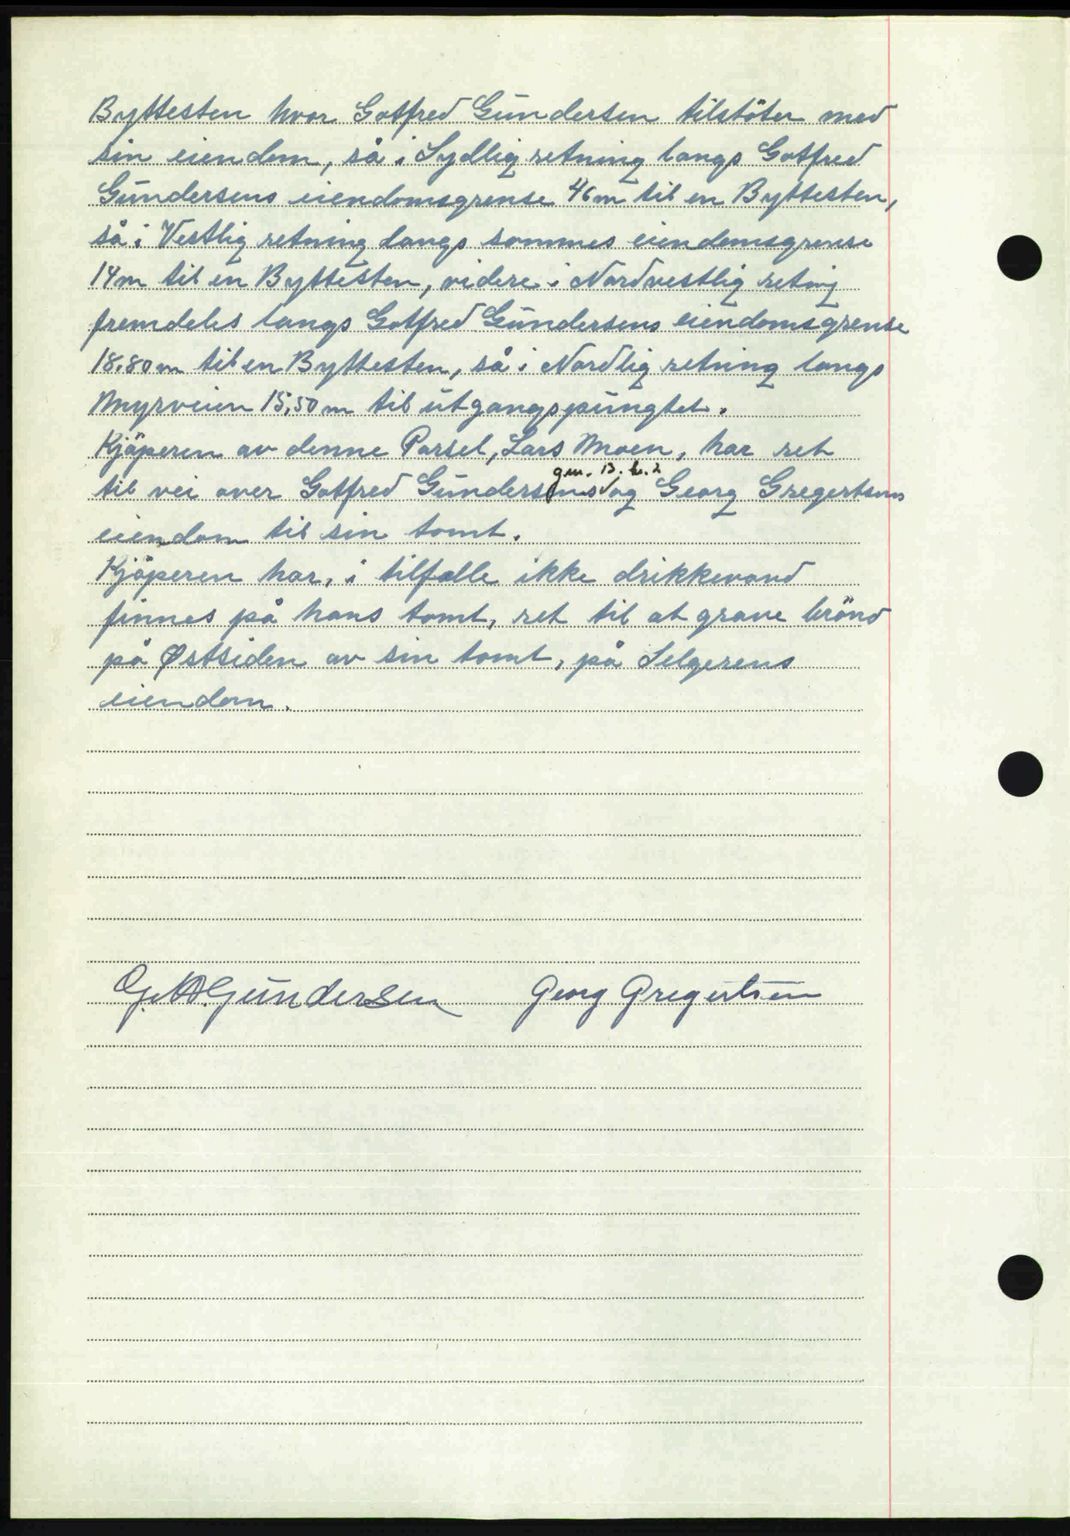 Byttesten hvor Gotfred Gundersen tilstöter med
sin eiendom, så i Sydlig retning langs Gotfred
Gundersens eiendomsgrense 46 m til en Byttesten,
så i Vestlig retning langs sammes eiendomsgrense
14 m til en Byttesten, videre i Nordvestlig retnig
fremdeles langs Gotfred Gundersens eiendomsgrense
18,80 m til en Byttesten, så i Nordlig retning langs
Myrveien 15,50 m til utgangspungtet.
Kjöperen av denne Parsel, Lars Moen, har ret
gnr. 13. b. 2
til vei over Gotfred Gundersens og Georg Gregertsens
eiendom til sin tomt.
Kjöperen har, i tilfælle ikke drikkevand
finnes på hans tomt, ret til at grave brönd
på Østsiden av sin tomt, på Selgerens
eiendom.
G. A. Gundersen Georg Gregertsen